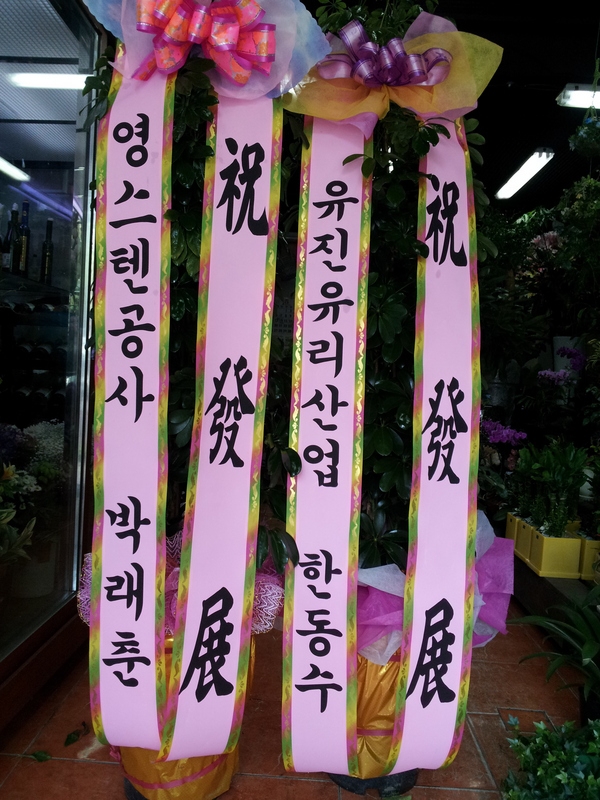 영 스텐공사 박래춘
祝 發 展
유진유리산업 한동수
祝 發 展